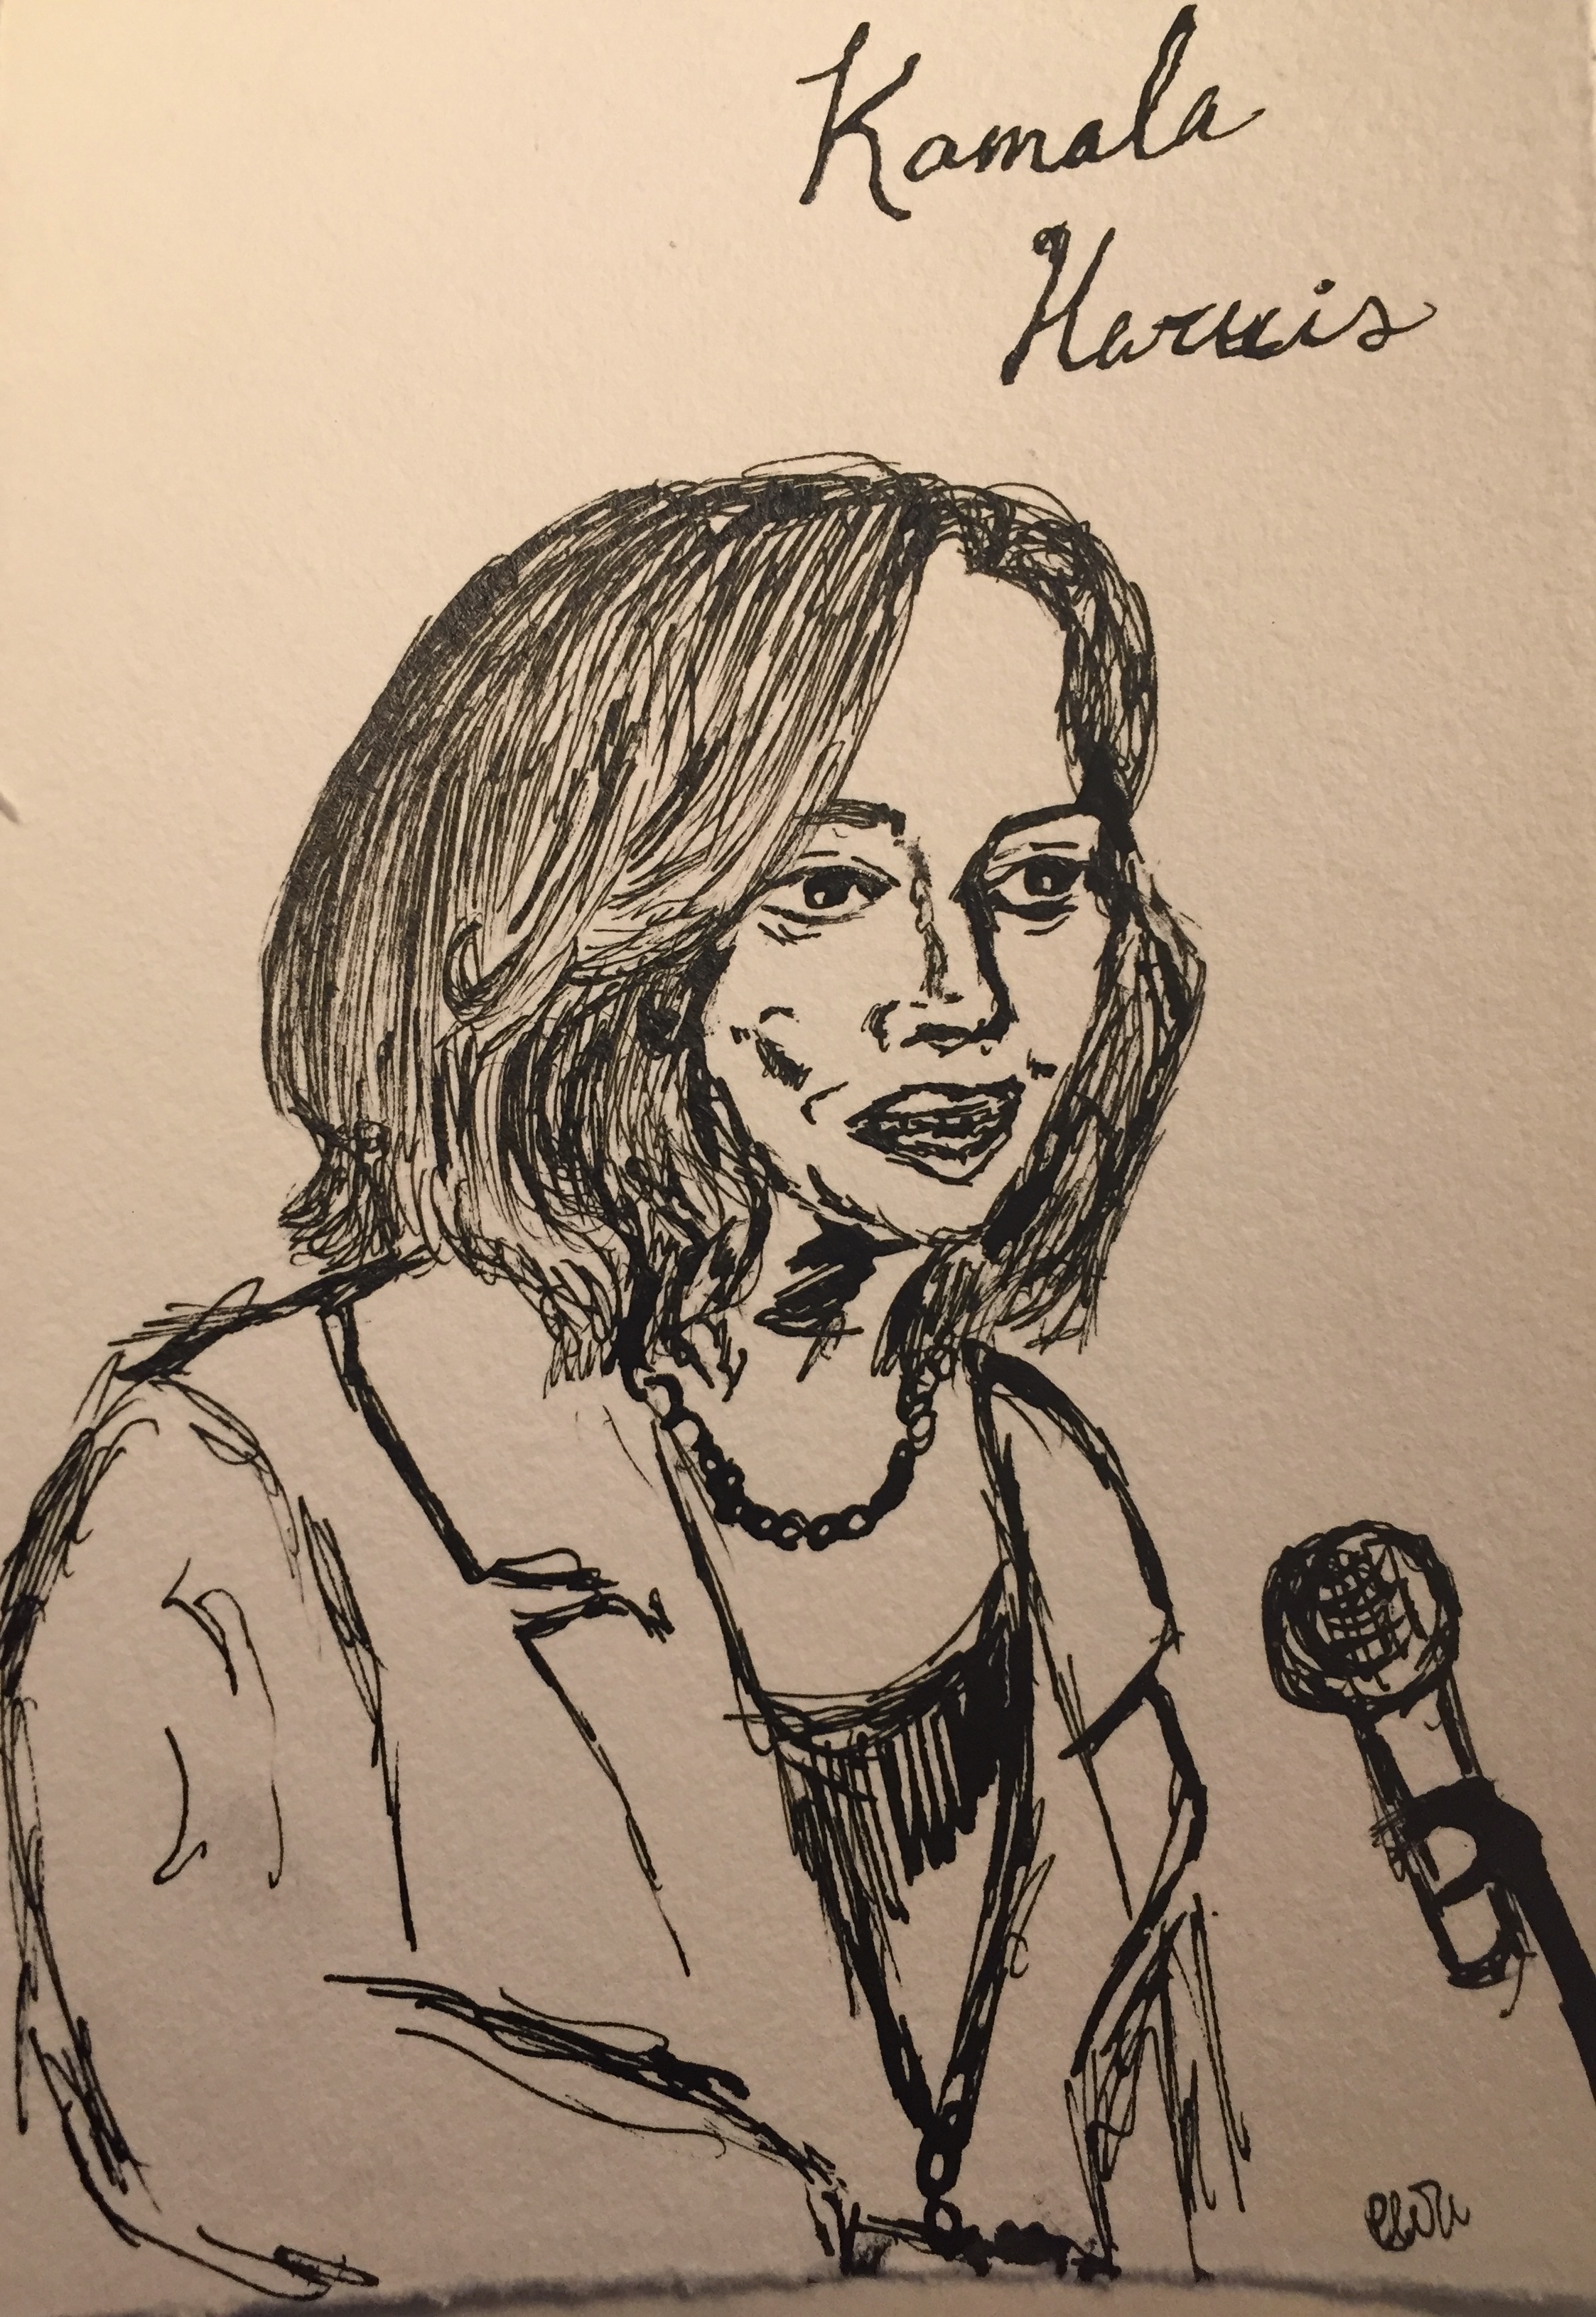 Kamala
Harris